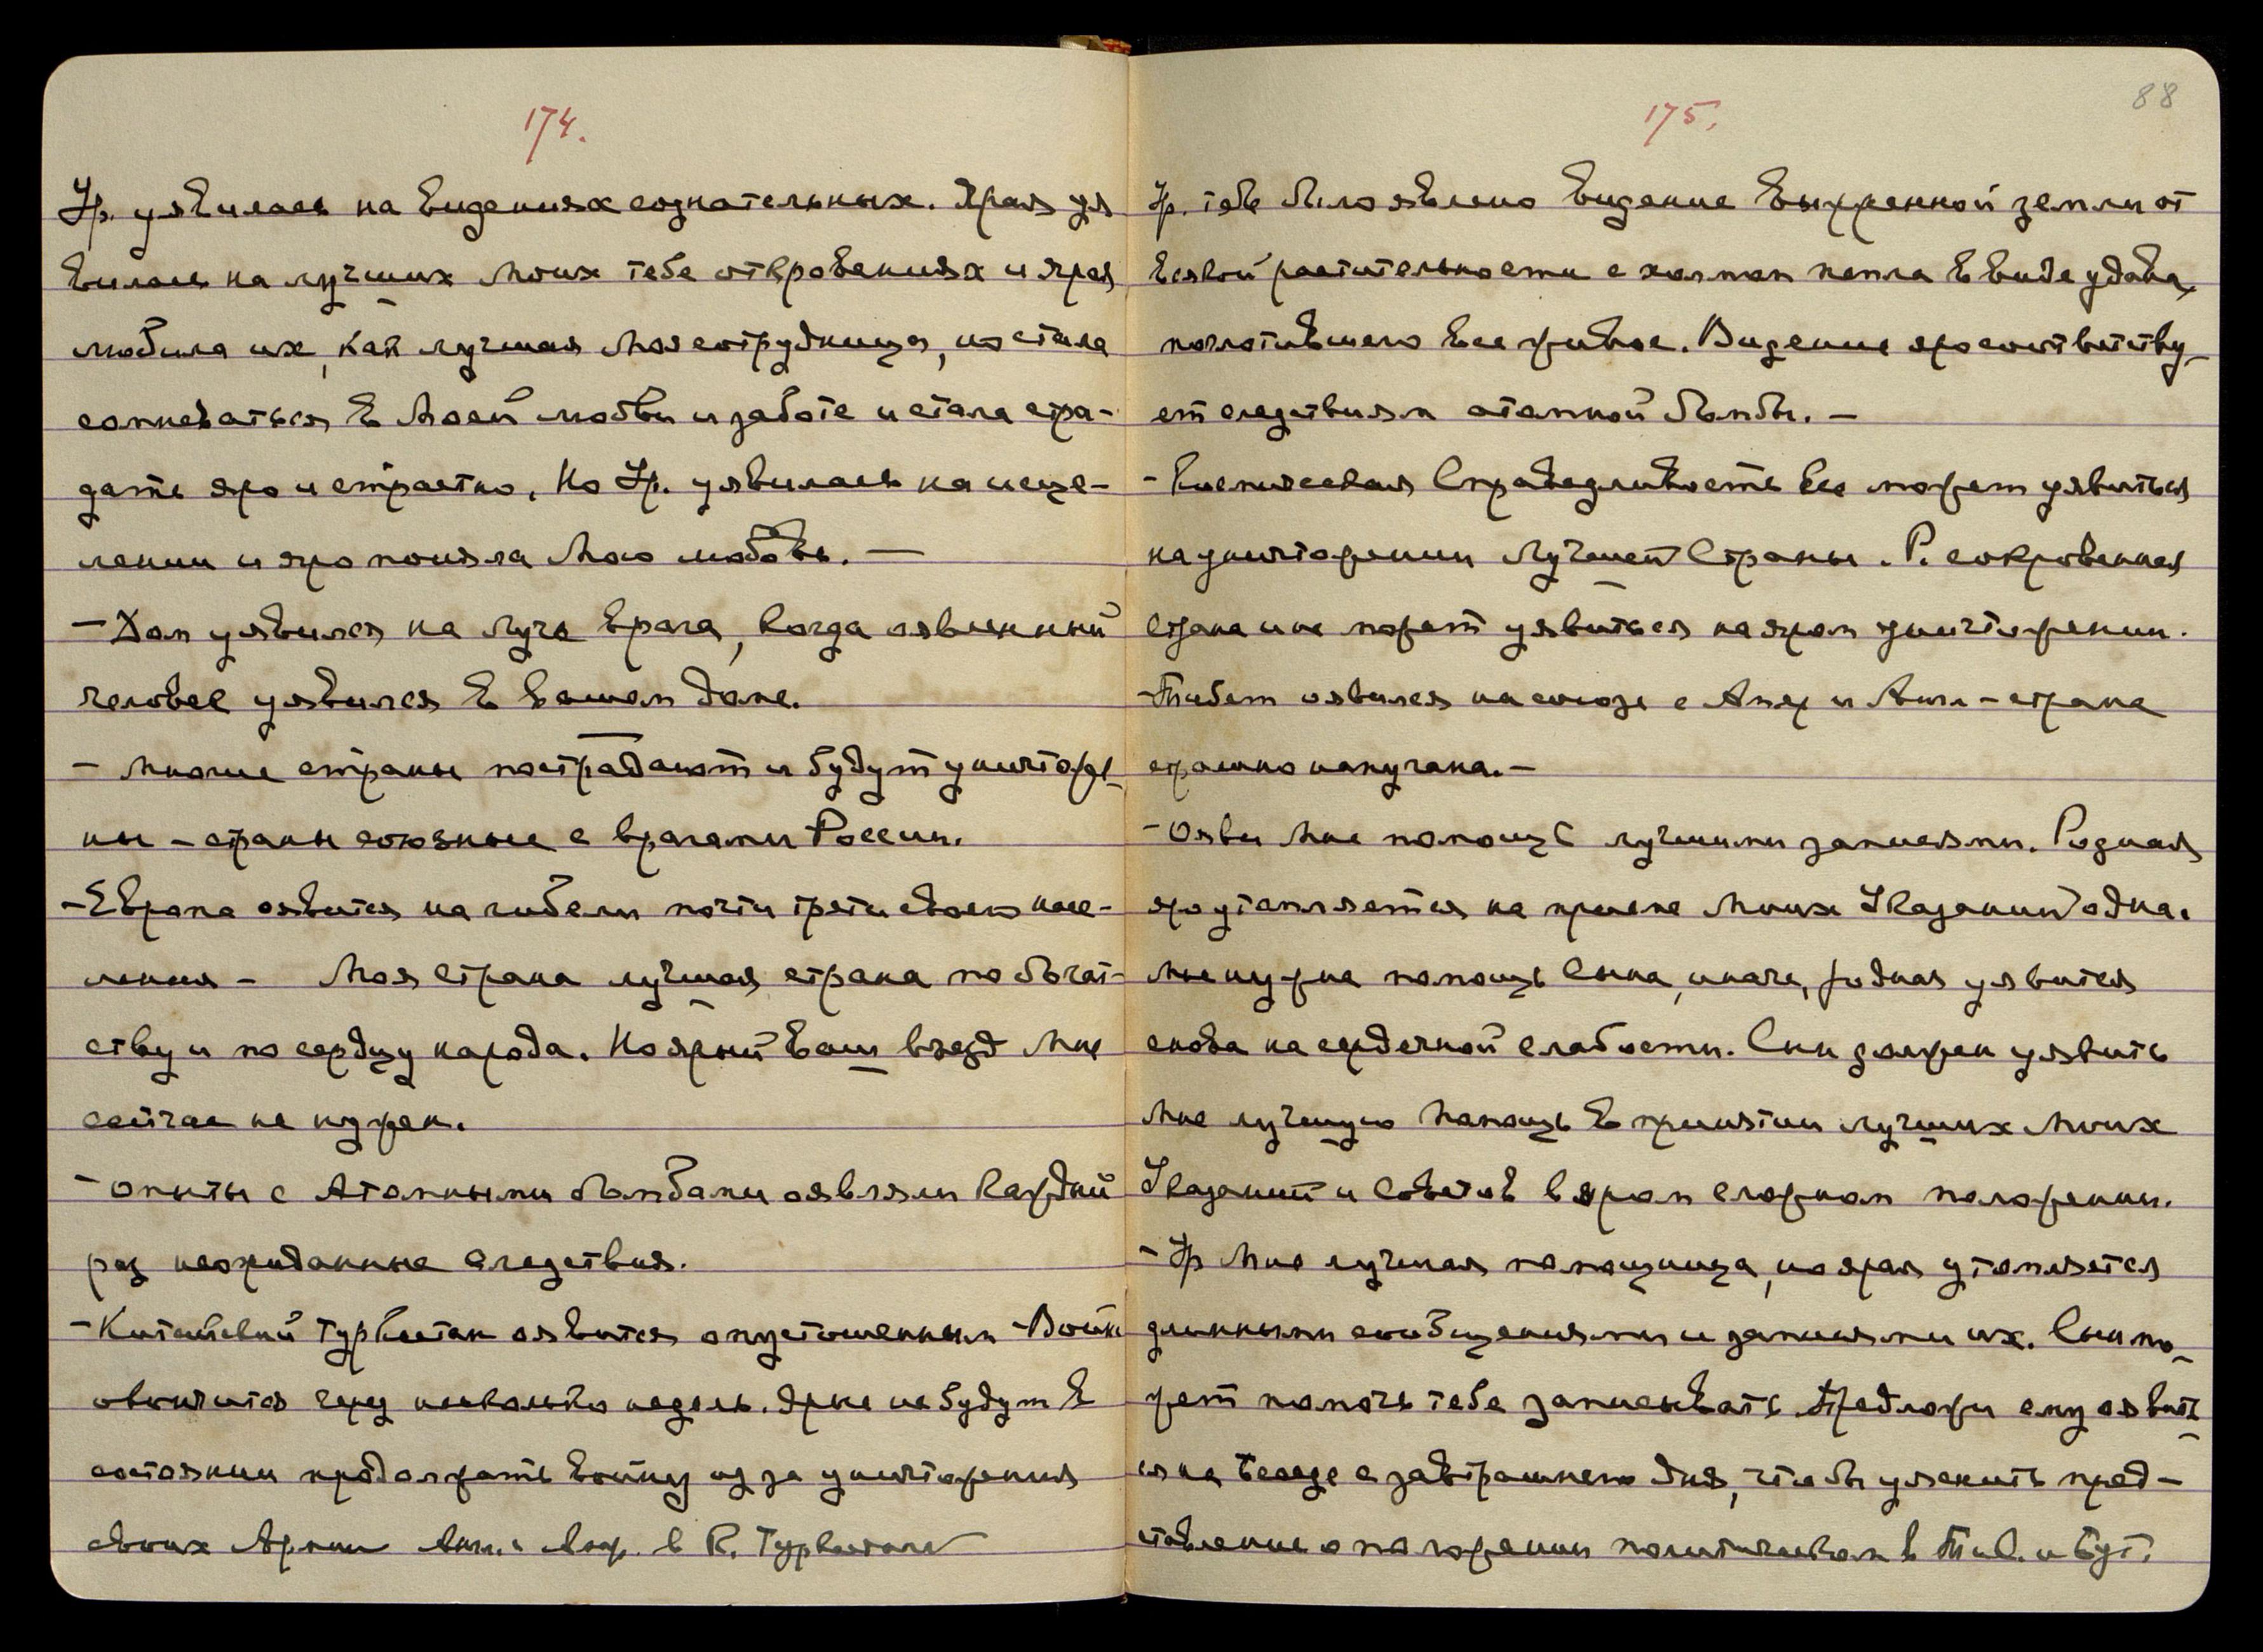 174.
Ур. уявилась на Видениях сознательных. Ярая уя
вилась на лучших Моих тебе откровениях и ярая
любила их, как лучшая Моя сотрудница, но стала
сомневаться в Моей любви и заботе и стала стра-
дать яро и страстно. Но Ур. уявилась на исце-
лении и яро поняла Мою любовь. —
— Дом уявился на Луче Врага, когда оявленный
человек уявился в Вашем доме.
— Многие страны пострадают и будут уничтоже-
ны – страны союзные с врагами России.
- Европа оявится на гибели почти трети своего насе-
ления – Моя Страна лучшая страна по богат-
ству и по сердцу народа. Но ярый Ваш въезд Мне
сейчас не нужен.
- Опыты с Атомными бомбами оявляли каждый
раз неожиданные следствия.
- Китайский Туркестан оявится опустошенным - Война
окончится через несколько недель. Ярые не будут в
состоянии продолжать войну из за уничтожения
своих Армий Англ. и Амер. в К. Туркестане
88
175.
Ур. тебе было явлено Видение Выжженной земли от
всякой растительности с холмом пепла в виде удава,
поглотившего все живое. Видение яро соответству-
ет следствиям атомной бомбы. —
- Космическая Справедливость не может уявиться
на уничтожении Лучшей Страны. Р. сокровенная
страна и не может уявиться на яром уничтожении.
- Тибет оявился на союзе с Амер и Англ – страна
страшно напугана. –
- Ояви Мне помощь лучшими записями. Родная
яро утомляется на приеме Моих Указаний одна.
Мне нужна помощь Сына, иначе, родная уявится
снова на сердечной слабости. Сын должен уявить
Мне лучшую помощь в принятии лучших Моих
Указаний и Советов в яром сложном положении.
- Ур Мне лучшая помощница, но ярая утомляется
длинными сообщениями и записями их. Сын мо-
жет помочь тебе записывать. Предложи ему оявить-
ся на беседе с завтрашнего дня, чтобы уяснить пред-
ставление о положении политическом в Тиб. и Бут.